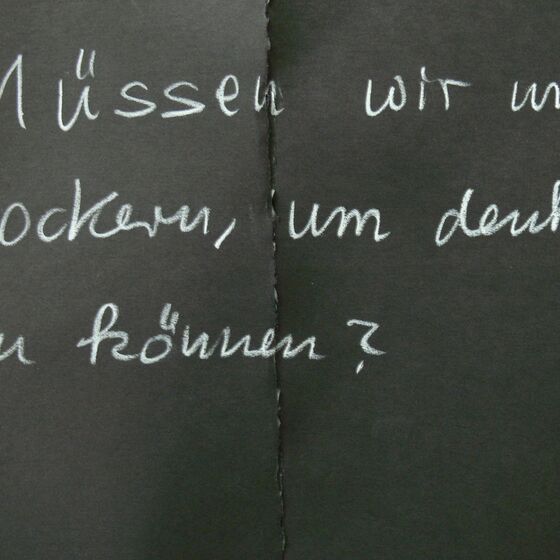 Müssen wir un
ockern, um denk
u können?